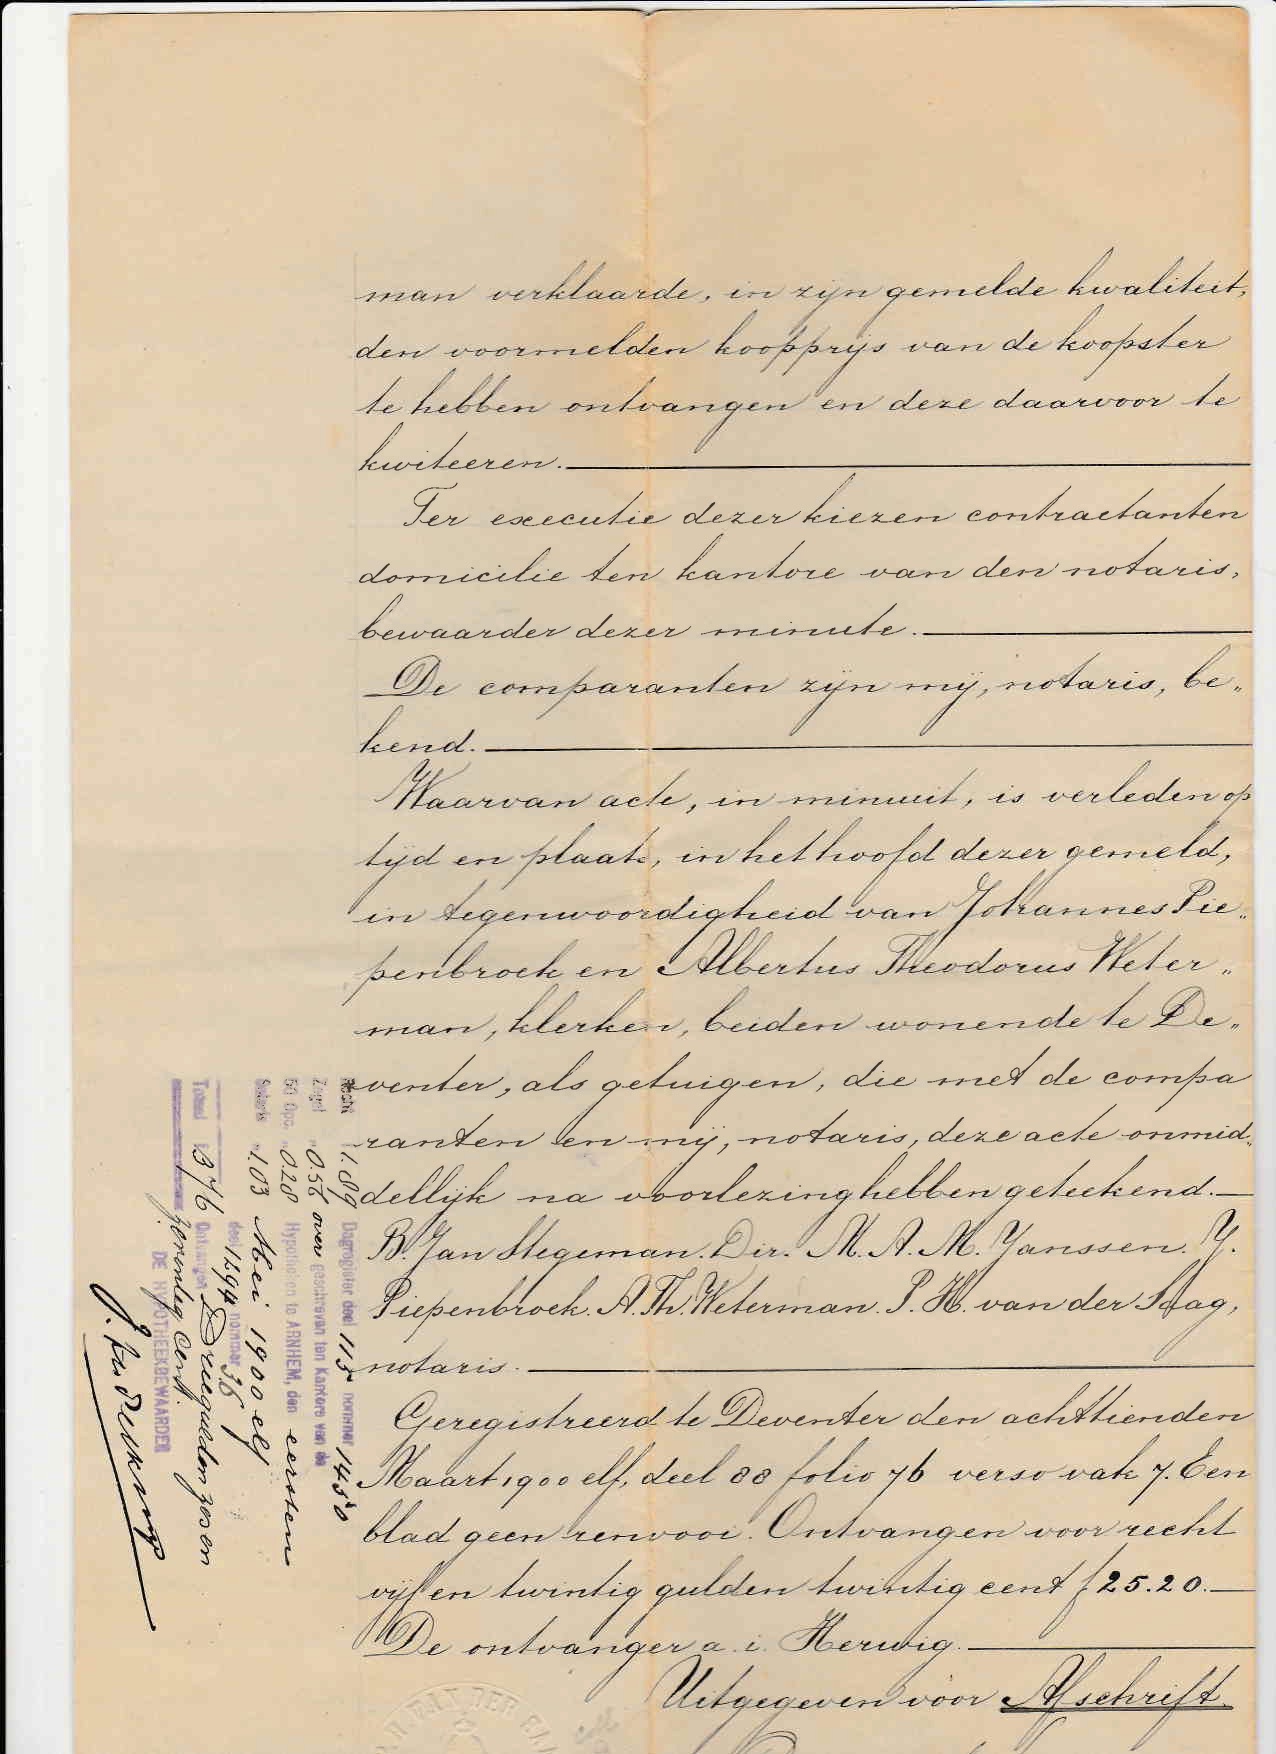 man verklaarde, in zijn gemelde kwaliteit,
den voormelden koopprijs van de koopster
te hebben ontvangen en deze daarvoor te
kwiteeren.
Ter executie dezer kiezen contractanten
domicilie ten kantore van den notaris,
bewaarder dezer minute.
De comparanten zijn mij, notaris, be„
kend.
Waarvan acte, in minuut, is verleden op
tijd en plaats, in het hoofd dezer gemeld,
in tegenwoordigheid van Johannes Pie„
penbroek en Albertus Theodorus Weter„
man, klerken, beiden wonende te De„
venter, als getuigen, die met de compa
ranten en mij, notaris, deze acte onmid„
dellijk na voorlezing hebben geteekend.
B. Jan Stegeman. Dir. M. A. M. Janssen. J.
Piepenbroek. A. Th. Weterman. P. H. van der Saag,
notaris.
Geregistreerd te Deventer den achttienden
Maart 1900 elf, deel 88 folio 76 verso vak 7. Een
blad geen renvooi. Ontvangen voor recht
vijf en twintig gulden twintig cent f 25.20.
De ontvanger a. i. Herwig.
Uitgegeven voor Afschrift.
Recht 1.89 Dagregister deel 115 nommer 1450
Zegel „ 0.56 over geschreven ten Kantore van de
50 Opc. „ 0.28 Hypotheken te ARNHEM, den eersten
Salaris „ 1.03 Mei 1900 elf
deel 1294 nommer 36
Totaal 3.76 Ontvangen Drie gulden zes en
zeventig cent.
DE HYPOTHEEKBEWAARDER